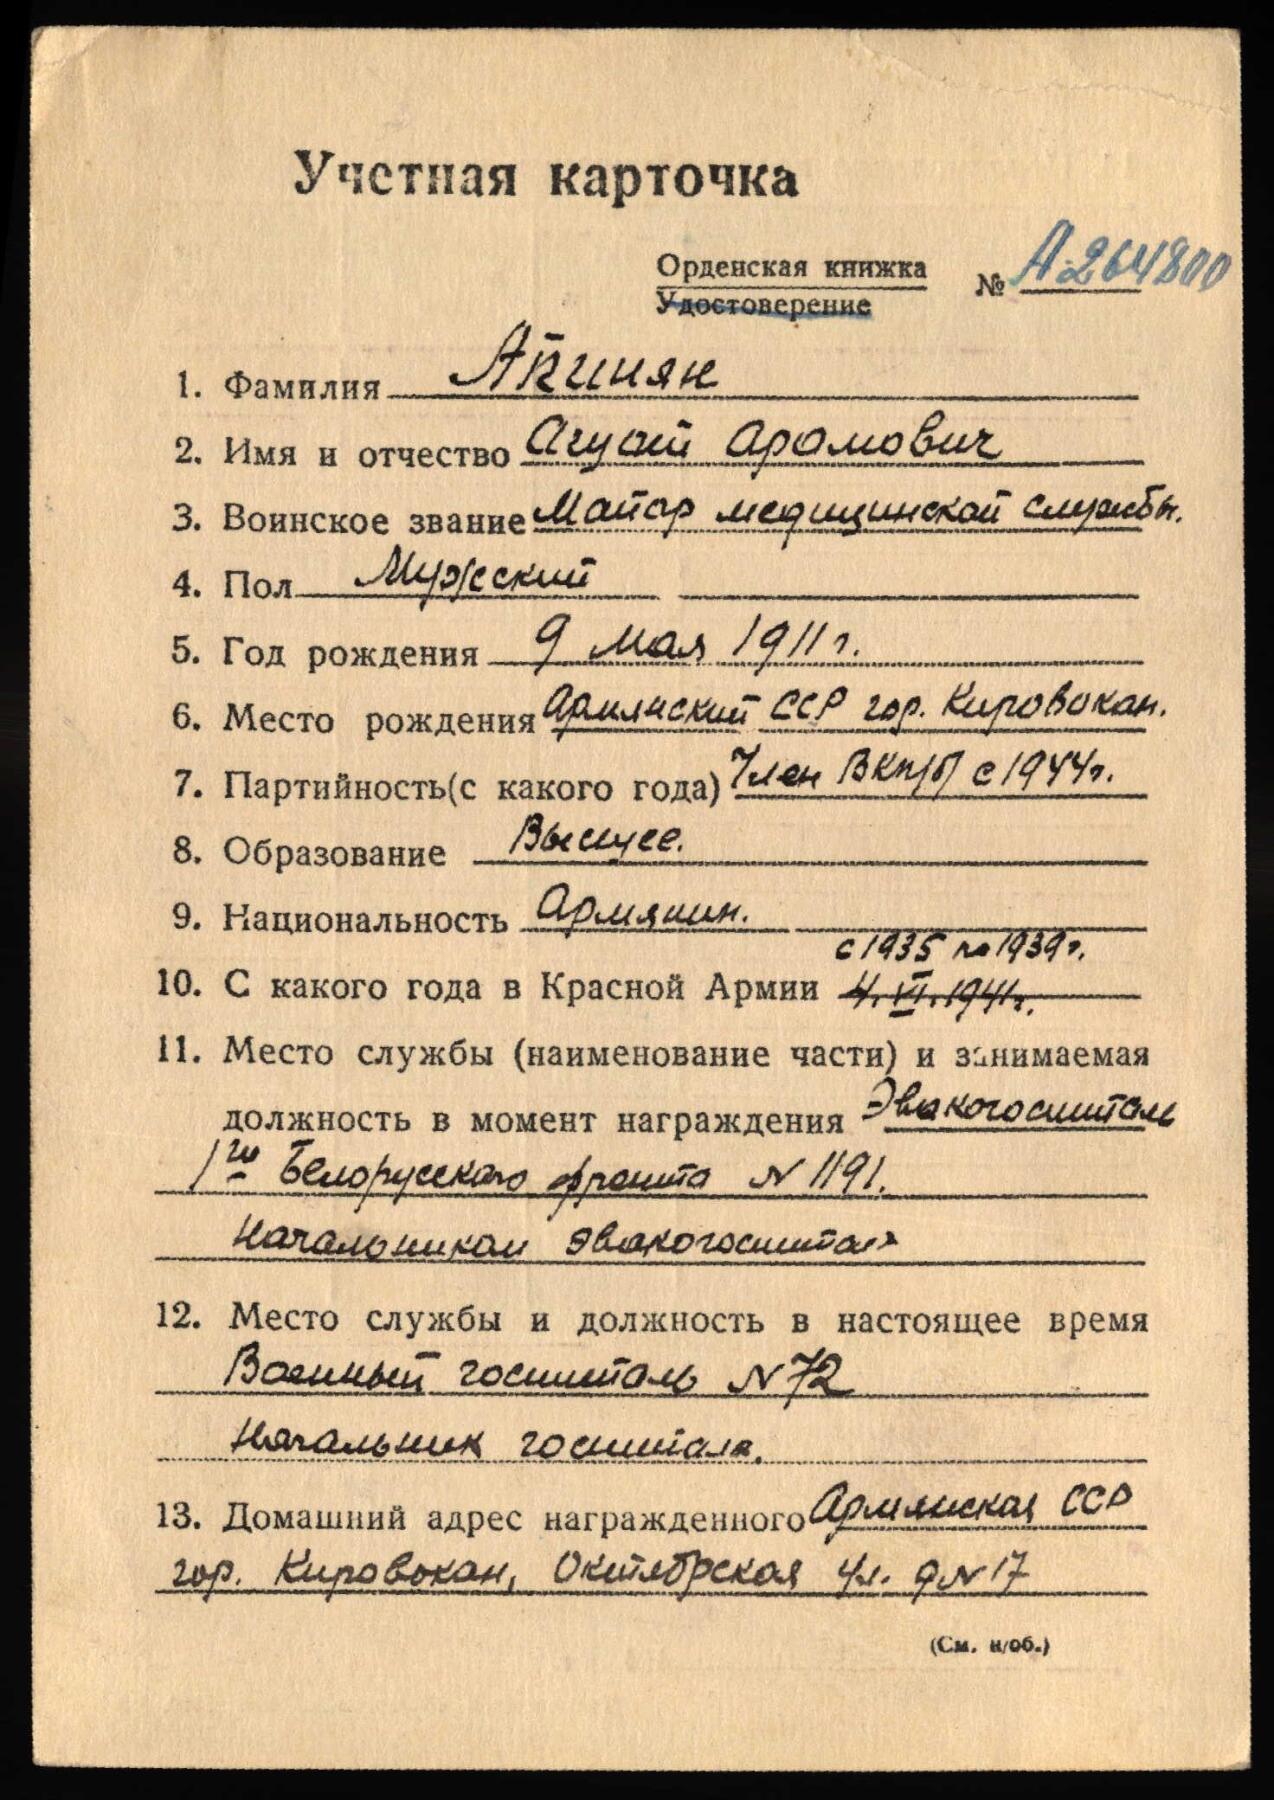 Учетная карточка
Орденская книжка
Удостоверение
№ А264800
1. Фамилия Апинян
2. Имя и отчество Агуат Арамович
3. Воинское звание Майор медицинской службы.
4. Пол Мужский
5. Год рождения 9 мая 1911 г.
6. Место рождения Армянский ССР гор. Кировокан.
7. Партийность(с какого года) Член ВКП/б/ с 1944 г.
8. Образование Высшее.
9. Национальность Армянин.
с 1935 по 1939 г.
10. С какого года в Красной Армии 4. VI. 1941 г.
11. Место службы (наименование части) и занимаемая
должность в момент награждения Эвакогоспиталь
1го Белорусского фронта N 1191.
Начальником эвакогоспиталя
12. Место службы и должность в настоящее время
Военный госпиталь N 72
Начальник госпиталя.
13. Домашний адрес награжденного Армянская ССР
гор. Кировокан, Октябрская ул. д N 17
(См. н/об.)